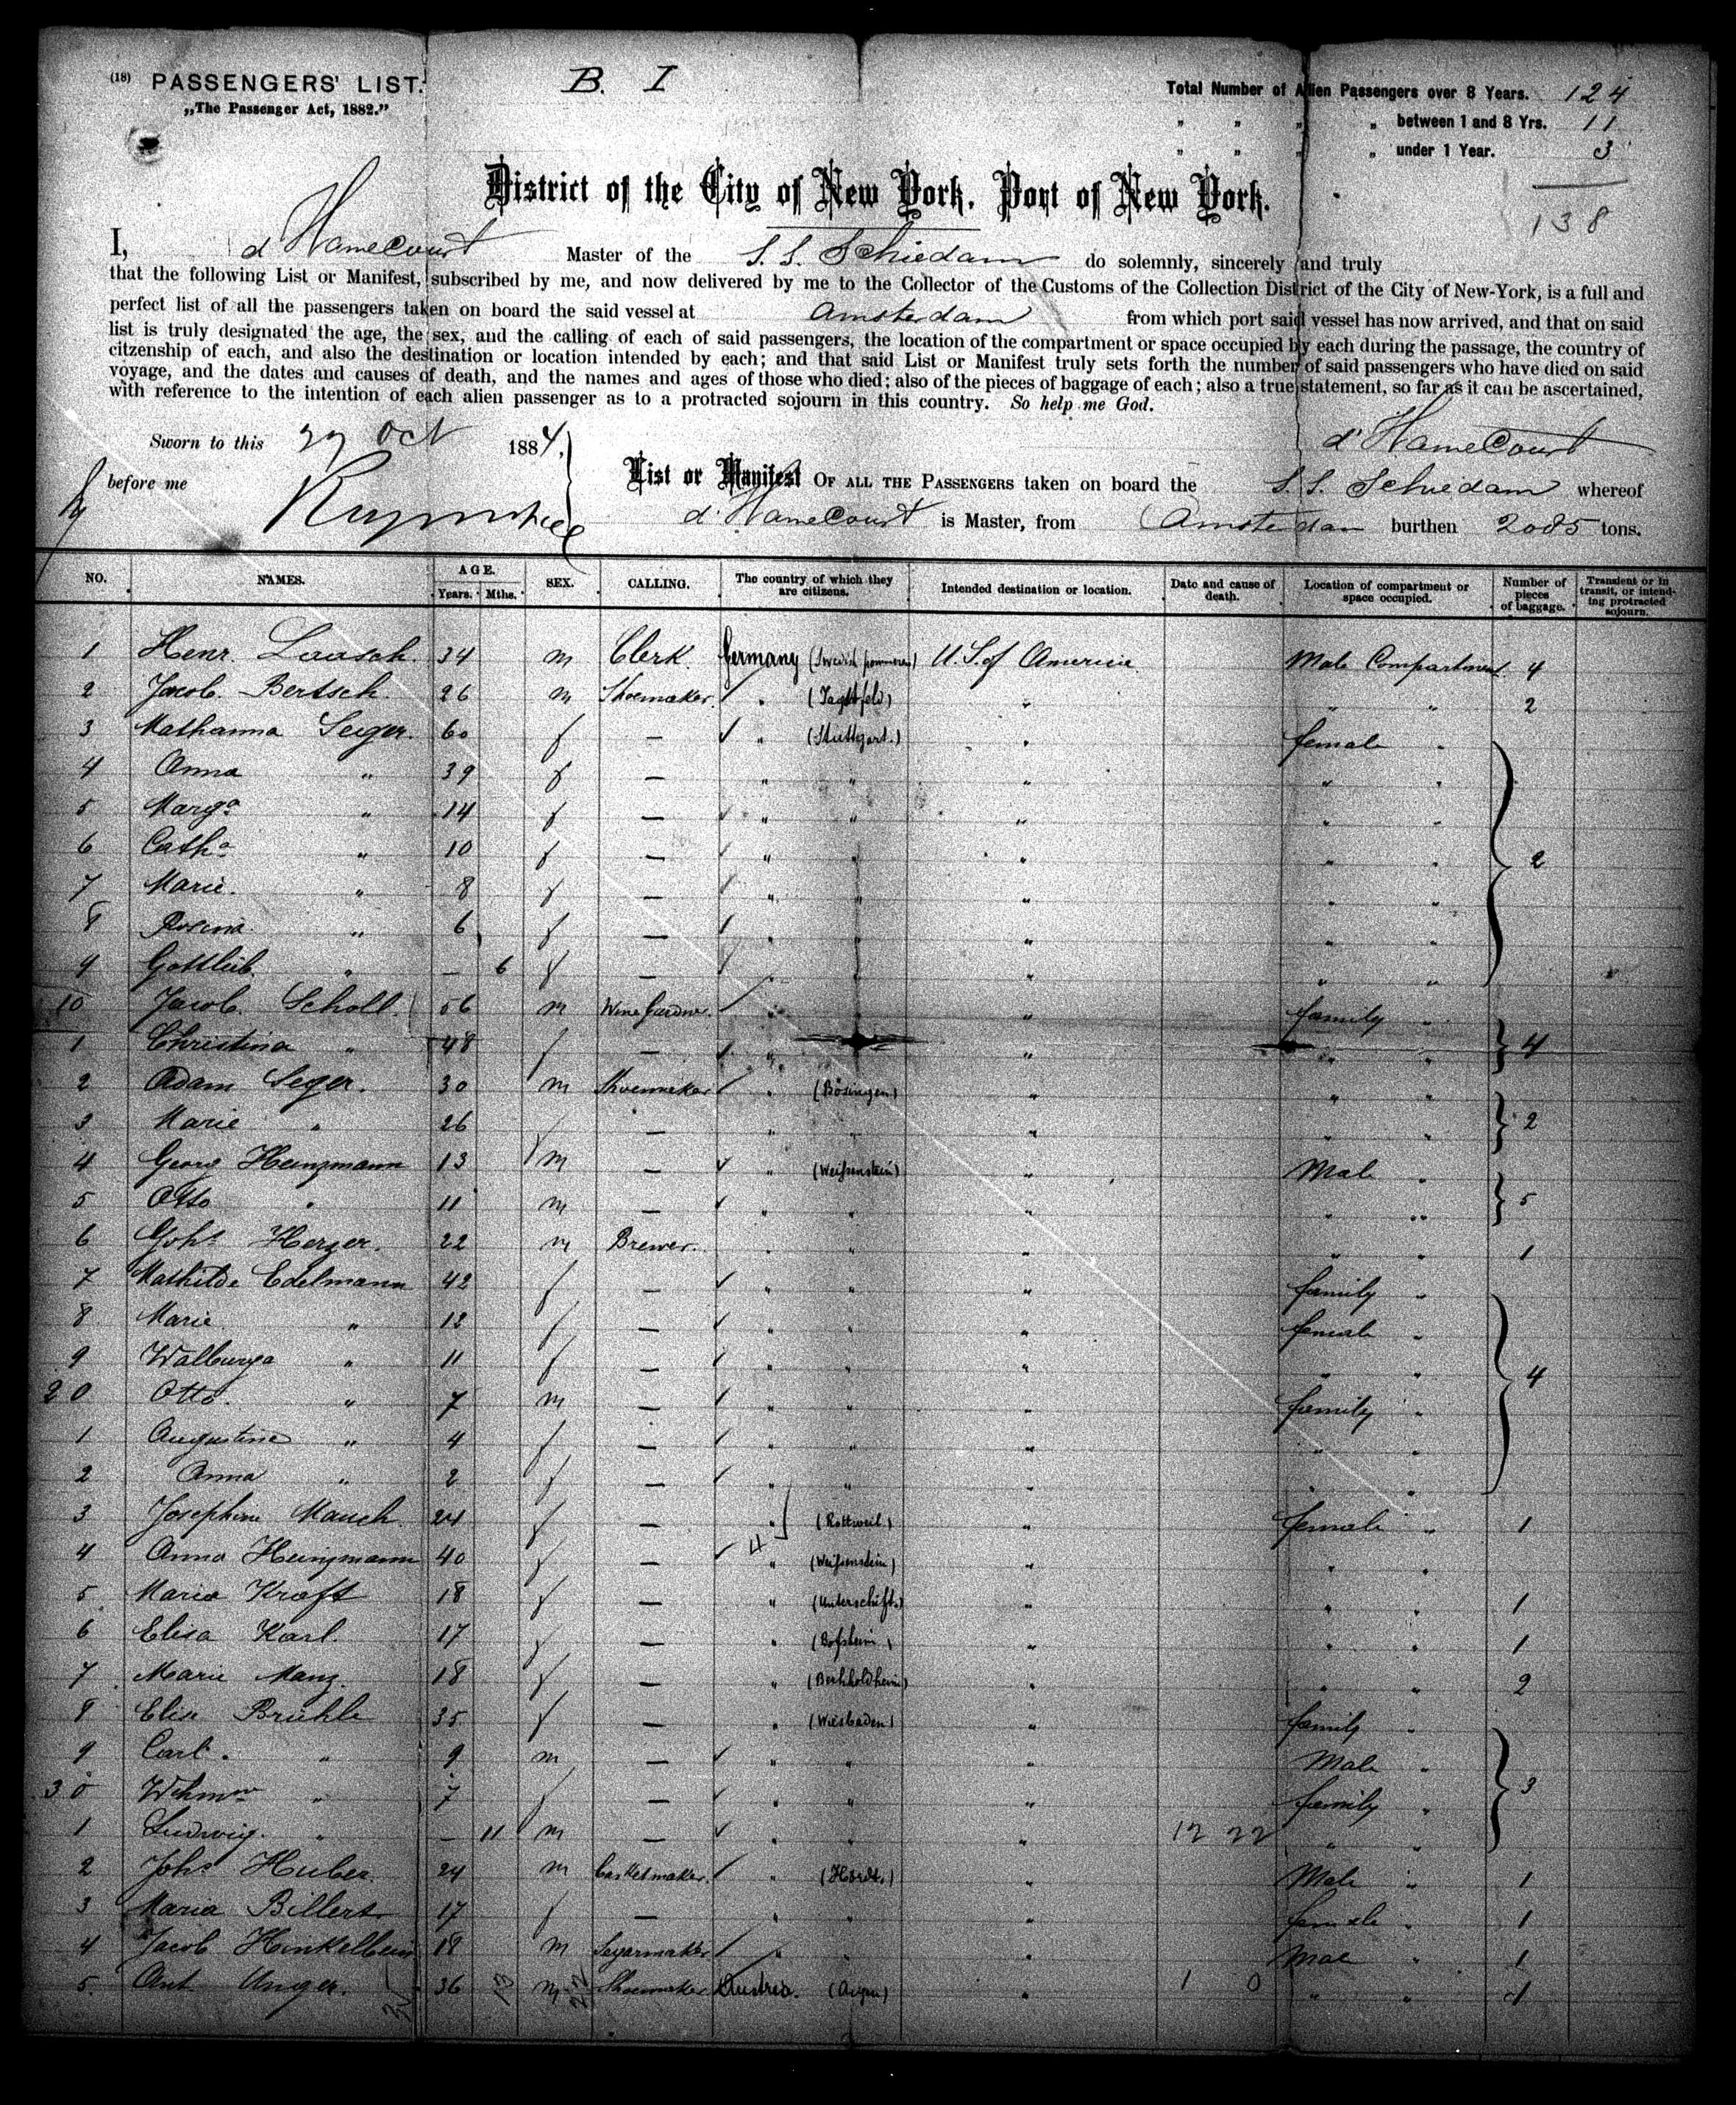 (18) PASSENGERS' LIST. B. I Total Number of Alien Passengers over 8 Years. 124
„The Passenger Act, 1882." „ „ „ „ between 1 and 8 Yrs. 11
„ „ „ „ under 1 Year. 3
138
District of the City of New York, Port of New York.
I, d'HameCourt Master of the S. S. Schiedam do solemnly, sincerely and truly
that the following List or Manifest, subscribed by me, and now delivered by me to the Collector of the Customs of the Collection District of the City of New-York, is a full and
perfect list of all the passengers taken on board the said vessel at Amsterdam from which port said vessel has now arrived, and that on said
list is truly designated the age, the sex, and the calling of each of said passengers, the location of the compartment or space occupied by each during the passage, the country of
citzenship of each, and also the destination or location intended by each; and that said List or Manifest truly sets forth the number of said passengers who have died on said
voyage, and the dates and causes of death, and the names and ages of those who died; also of the pieces of baggage of each; also a true statement, so far as it can be ascertained,
with reference to the intention of each alien passenger as to a protracted sojourn in this country. So help me God.
Sworn to this 27 Oct 1884, d'HameCourt
before me
List or Manifest OF ALL THE PASSENGERS taken on board the S. S. Schiedam whereof
d'HameCourt is Master, from Amsterdam burthen 2085 tons.
NO. NAMES. AGE. Years. Mths. SEX. CALLING. The country of which they are citizens. Intended destination or location. Date and cause of death. Location of compartment or space occupied. Number of pieces of baggage. Transient or in transit, or intending protracted sojourn.
1 Henr. Laasch. 34 m Clerk. Germany U. S. of America Male Compartment 4
2 Jacob. Bertsch. 26 m Shoemaker. „ (Jagstfeld) „ „ „ 2
3 Mathanna Seiger. 60 f — „ (Stuttgart.) „ female „
4 Anna „ 39 f — „ „ „ „ „
5 Marga „ 14 f — „ „ „ „ „
6 Catha „ 10 f — „ „ „ „ „ 2
7 Marie. „ 8 f — „ „ „ „ „
8 Rosina. „ 6 f — „ „ „ „ „
9 Gottlieb. „ — 6 f — „ „ „ „ „
10 Jacob. Scholl. 56 m Wine Gardner. „ „ „ family „
1 Christina „ 48 f — „ „ „ „ „ 4
2 Adam Seger. 30 m Shoemaker „ (Bösingen) „ „ „
3 Marie „ 26 f — „ „ „ „ „ 2
4 Georg Heinzmann 13 m — „ (Weißenstein) „ Male „
5 Otto „ 11 m — „ „ „ „ „ 5
6 Johs Herzer. 22 m Brewer. „ „ „ „ „ 1
7 Mathilde Edelmann 42 f — „ „ „ family „
8 Marie. „ 12 f — „ „ „ female „
9 Walburga „ 11 f — „ „ „ „ „ 4
20 Otto. „ 7 m — „ „ „ family „
1 Augustine „ 4 f — „ „ „ „ „
2 Anna „ 2 f — „ „ „ „ „
3 Josephine Mauch. 24 f — „ (Rottweil.) „ female „ 1
4 Anna Heinzmann 40 f — 4 „ (Weißenstein) „ „ „
5 Maria Kraft 18 f — „ (Unterschüpf.) „ „ „ 1
6 Elisa Karl. 17 f — „ (Bofsheim) „ „ „ 1
7 Marie Manz. 18 f — „ „ „ „ 2
8 Elise Brühle 35 f — „ (Wiesbaden) „ family „
9 Carl. „ 9 m — „ „ „ Male „
30 „ 7 f — „ „ „ family „ 3
1 Ludwig. „ — 11 m — „ „ „ 12 22 „ „
2 Johs Huber. 24 m Casketmaker. „ (Hardt.) „ Male „ 1
3 Maria Billert 17 f — „ „ „ female „ 1
4 Jacob Hinkelbein 18 m Segarmaker „ „ „ Male „ 1
5. Ant Unger. 36 m Shoemaker Austria. „ 1 0 „ „ 1